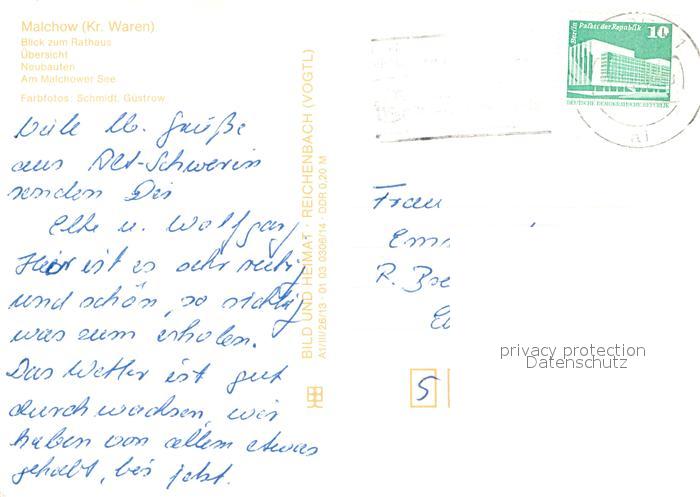 Malchow (Kr. Waren)
Blick zum Rathaus
Übersicht
Neubauten
Am Malchower See
Farbfotos: Schmidt, Güstrow
Viele lb. Grüße
aus Alt-Schwerin
senden Dir
Elke u. Wolfgang
Hier ist es sehr ruhig
und schön, so richtig
was zum erholen.
Das Wetter ist gut
durchwachsen, wir
haben von allem etwas
gehabt, bis jetzt.
BILD UND HEIMAT · REICHENBACH (VOGTL)
A1/III/26/13 · 01 03 0306/14 · DDR 0,20 M
Berlin Palast der Republik 10
DEUTSCHE DEMOKRATISCHE REPUBLIK
Frau
R.
5
privacy protection
Datenschutz